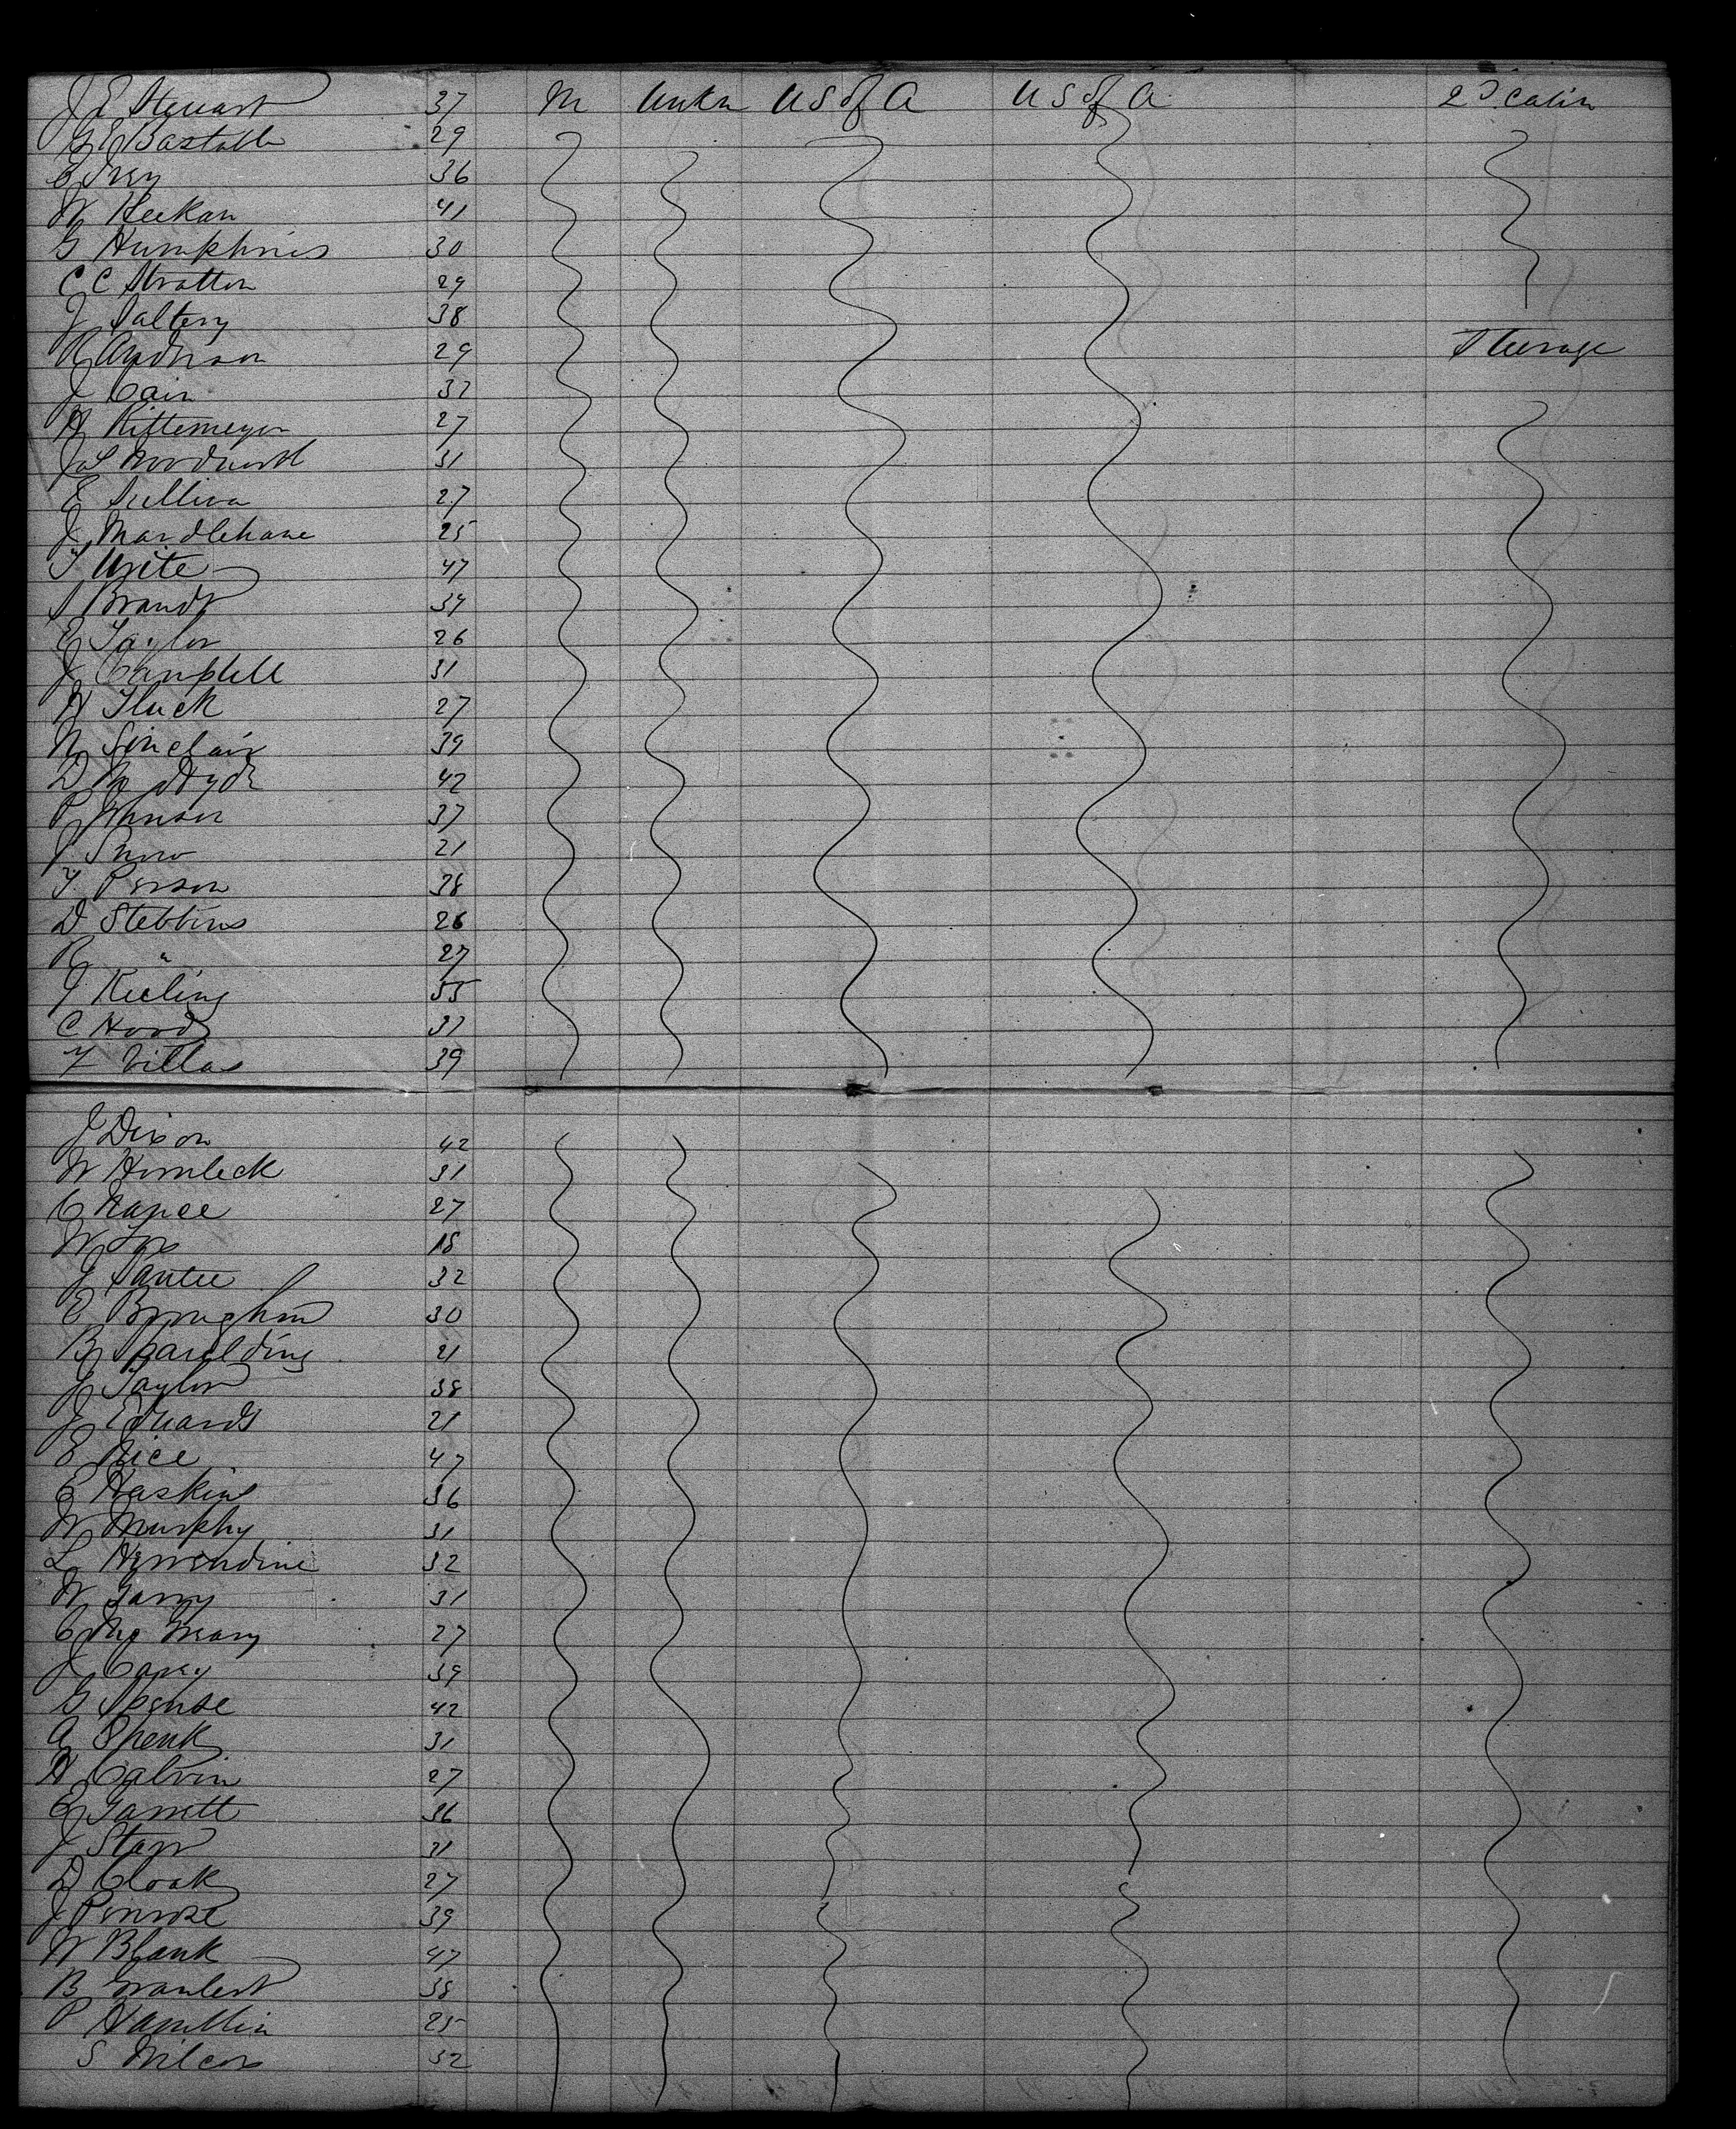 J E Steuart 37 M Unkn U S of A U S of A 2d Cabin
G E Bastable 29
C Frey 36
W Heekan 41
G Humphries 30
C C Stratton 29
J Saltery 38
R Anderson 29 Steerage
J Cain 37
H Rittemeyer 27
J L Woodworth 31
E Sulliva 27
J Mardlehane 25
T Urite 47
S Brandt 34
E Taylor 26
J Campbell 31
H Fluck 27
N Sinclair 39
D M Hyde 42
P Johnson 37
J Snow 21
F Person 38
D Stebbins 26
R " 27
J Keeling 55
C Hood 37
F Villas 39
J Dixon 42
W Hornbeck 31
C Napee 27
W 18
J Santee 32
E Brougham 30
B Sparelding 21
J Taylor 38
J Eduards 21
E Rice 47
C Haskins 36
W Murphy 31
L Herrendine 32
W Garry 31
C 27
J Casey 39
G Spense 42
A Shenk 31
H Calvin 27
E Garrett 36
J Starr 31
D Cloak 27
J Penrose 39
W Blank 47
B 38
P Hamblin 25
S Wilcox 32